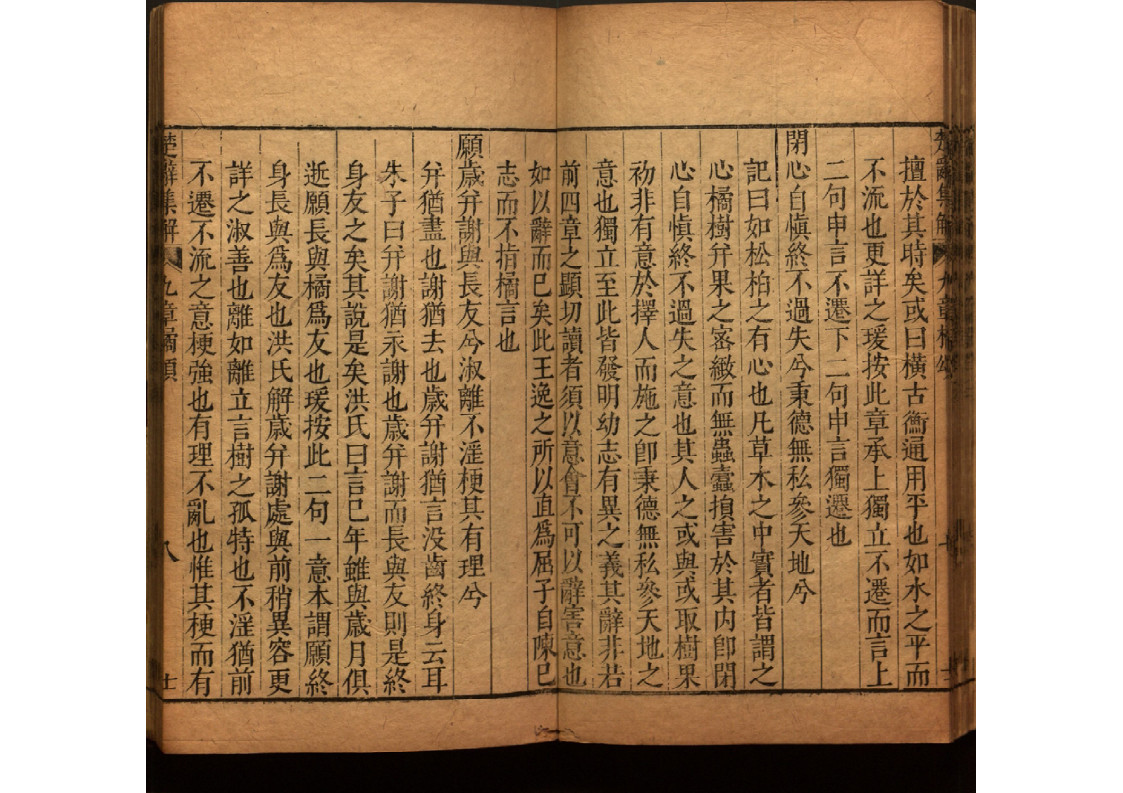 楚辭集解 九章橘頌
擅於其時矣或曰橫古衡通用平也如水之平而
不流也更詳之瑗按此章承上獨立不遷而言上
二句申言不遷下二句申言獨遷也
閉心自愼終不過失兮秉德無私參天地兮
記曰如松柏之有心也凡草木之中實者皆謂之
心橘樹幷果之密緻而無蟲蠧損害於其内卽閉
心自愼終不過失之意也其人之或與或取樹果
初非有意於擇人而施之卽秉德無私參天地之
意也獨立至此皆發明幼志有異之義其辭非若
前四章之顯切讀者須以意會不可以辭害意也
如以辭而已矣此王逸之所以直爲屈子自陳已
志而不指橘言也
願歳幷謝與長友兮淑離不淫梗其有理兮
幷猶盡也謝猶去也歳幷謝猶言没齒終身云耳
朱子曰幷謝猶永謝也歳幷謝而長與友則是終
身友之矣其說是矣洪氏曰言已年雖與歳月俱
逝願長與橘爲友也瑗按此二句一意本謂願終
身長與爲友也洪氏解歳幷謝處與前稍異容更
詳之淑善也離如離立言樹之孤特也不淫猶前
不遷不流之意梗強也有理不亂也惟其梗而有
楚辭集解 九章橘頌 八 士